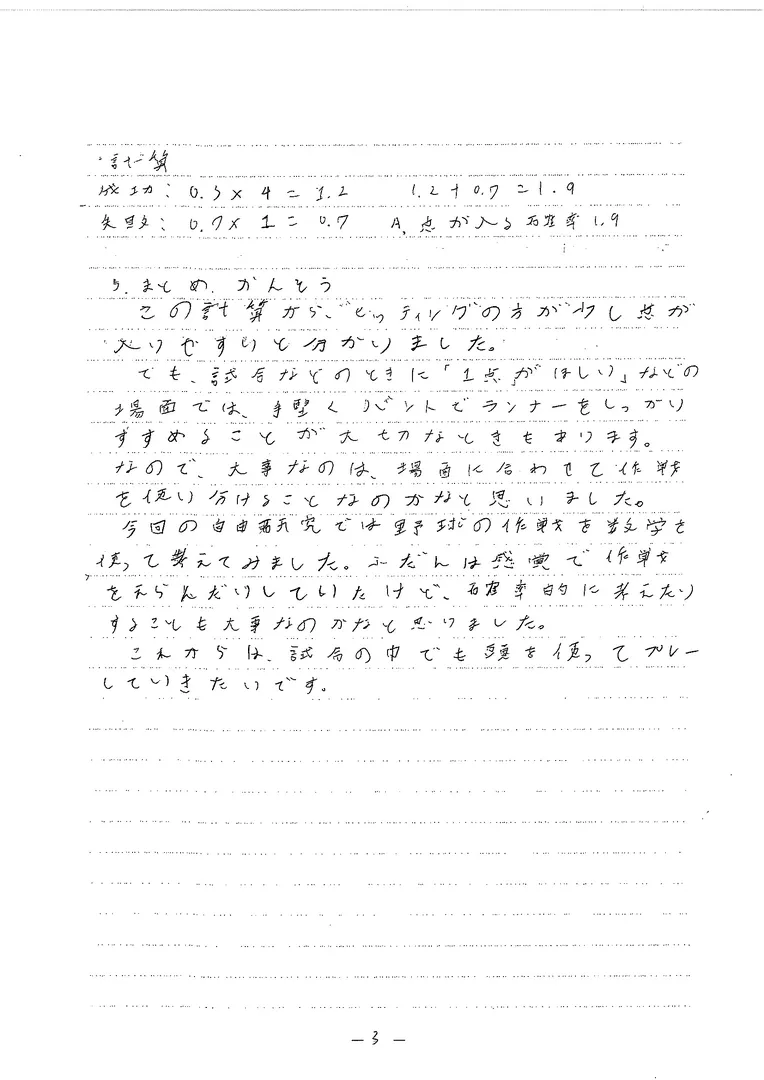 ・計算
成功：0.3×4＝1.2　1.2＋0.7＝1.9
失敗：0.7×1＝0.7　A,点が入る確率1.9
5.まとめ.かんそう
この計算から、ヒッティングの方が少し点が
入りやすいと分かりました。
でも、試合などのときに「1点がほしい」などの
場面では、手堅くバントでランナーをしっかり
すすめることが大切なときもあります。
なので、大事なのは、場面に合わせて作戦
を使い分けることなのかなと思いました。
今回の自由研究では野球の作戦を数学を
使って考えてみました。ふだんは感覚で作戦
をえらんだりしていたけど、確率的に考えたり
することも大事なのかなと思いました。
これからは、試合の中でも頭を使ってプレー
していきたいです。
－3－